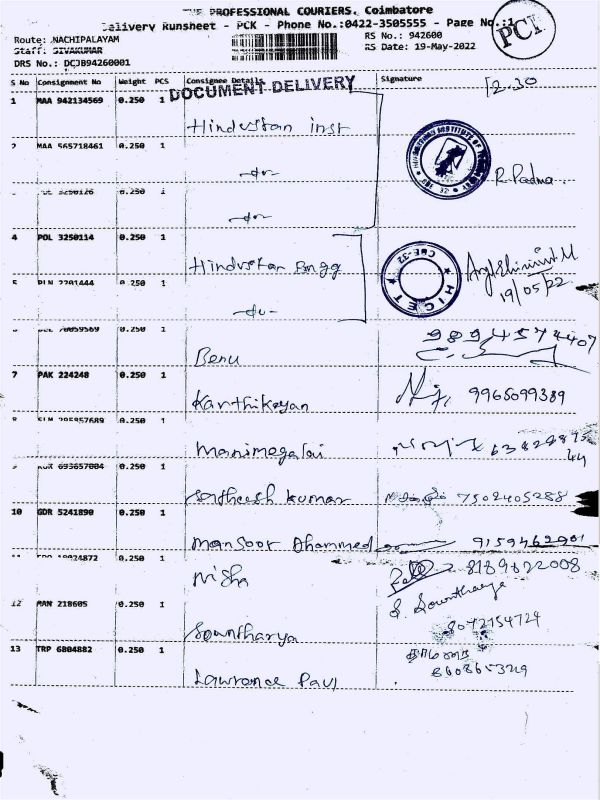 THE PROFESSIONAL COURIERS, Coimbatore
Delivery Runsheet - PCK - Phone No.:0422-3505555 - Page No.:1
PCI
Route: NACHIPALAYAM
RS No.: 942600
Staff: SIVAKUMAR
RS Date: 19-May-2022
DRS No.: DCJB94260001
S No Consignment No Weight PCS Consignee Details Signature
DOCUMENT DELIVERY
12.30
1 MAA 942134569 0.250 1
Hindustan inst
2 MAA 565718461 0.250 1
-do-
R Padma.
0.250 1
-do-
4 POL 3250114 0.250 1
Hindustan Engg
HICET
CBE-32
19/05/22
5 PLN 2201444 0.250 1
-do-
70059569 0.250 1
Benu
9894574407
7 PAK 224248 0.250 1
Karthikeyan
9965099389
8 SLM 0.250 1
Manimegalai
9 KGR 693657004 0.250 1
Satheesh kumar
7502405288
10 GDR 5241890 0.250 1
Mansoor Ahammed
0.250 1
Nisha
8189622008
12 MAN 218605 0.250 1
S. Sowntharya
Sowntharya
13 TRP 6804882 0.250 1
Lawrence Paul